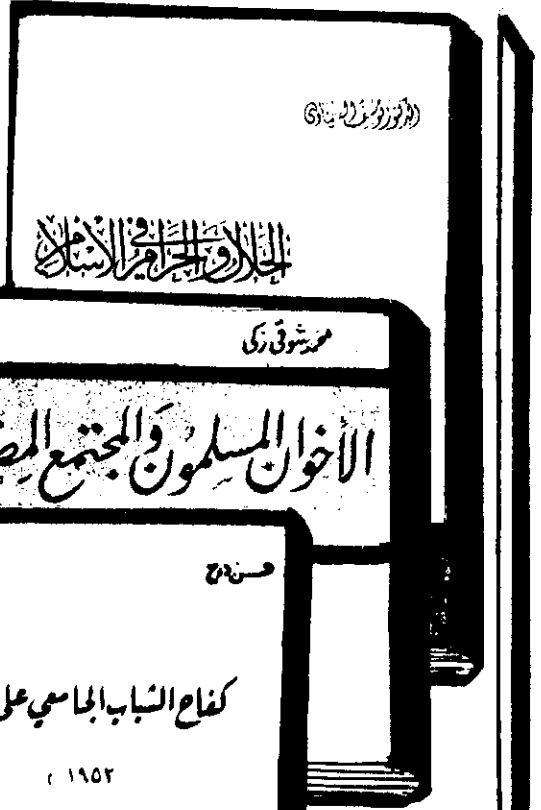 الدكتور يوسف القرضاوي
الحلال والحرام في الإسلام
محمد شوقي زكي
الأخوان المسلمون والمجتمع
حسن دوح
كفاح الشباب الجامعي على
١٩٥٢